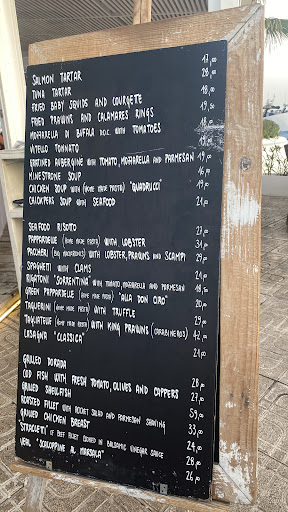 SALMON TARTAR 17,00
TUNA TARTAR 20,00
FRIED BABY SQUIDS AND COURGETE 18,00
FRIED PRAWNS AND CALAMARES RINGS 19,50
MOZZARELLA DI BUFALA D.O.C. WITH TOMATOES 18,00
VITELLO TONNATO 19,00
GRATINED AUBERGINE WITH TOMATO, MOZZARELLA AND PARMESAN 19,00
MINESTRONE SOUP 16,00
CHICKEN SOUP WITH (HOME MADE PASTA) "QUADRUCCI" 19,00
CHICKPEAS SOUP WITH SEAFOOD 21,00
SEAFOOD RISOTTO 27,00
PAPPARDELLE (HOME MADE PASTA) WITH LOBSTER 34,00
PACCHERI (BIG MACARRONIS) WITH LOBSTER, PRAWNS AND SCAMPI 29,00
SPAGHETTI WITH CLAMS 24,00
RIGATONI "SORRENTINA" WITH TOMATO, MOZZARELLA AND PARMESAN 18,50
GREEN PAPPARDELLE (HOME MADE PASTA) "ALLA DON CIRO" 21,00
TAGLIERINI (HOME MADE PASTA) WITH TRUFFLE 29,00
TAGLIATELLE (HOME MADE PASTA) WITH KING PRAWNS (CARABINEROS) 42,00
LASAGNA "CLASSICA" 21,00
GRILLED DORADA
COD FISH WITH FRESH TOMATO, OLIVES AND CAPPERS 28,00
GRILLED SHELLFISH 27,00
ROASTED FILLET WITH ROCKET SALAD AND PARMESAN SHAVING 59,00
GRILLED CHICKEN BREAST 33,00
"STRACCETTI" OF BEEF FILLET COOKED IN BALSAMIC VINEGAR SAUCE 24,00
VEAL "SCALOPPINE AL MARSALA" 28,00
26,00